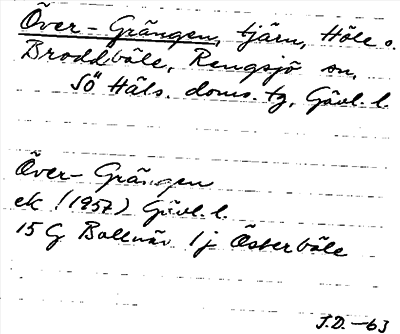 Över-Grängen, tjärn, Höle o.
Broddböle, Rengsjö sn,
SÖ Häls. doms. tg, Gävl. l.
Över-Grängen
ek (1957) Gävl. l.
15 G Bollnäs 1 j Österböle
J.D. -63